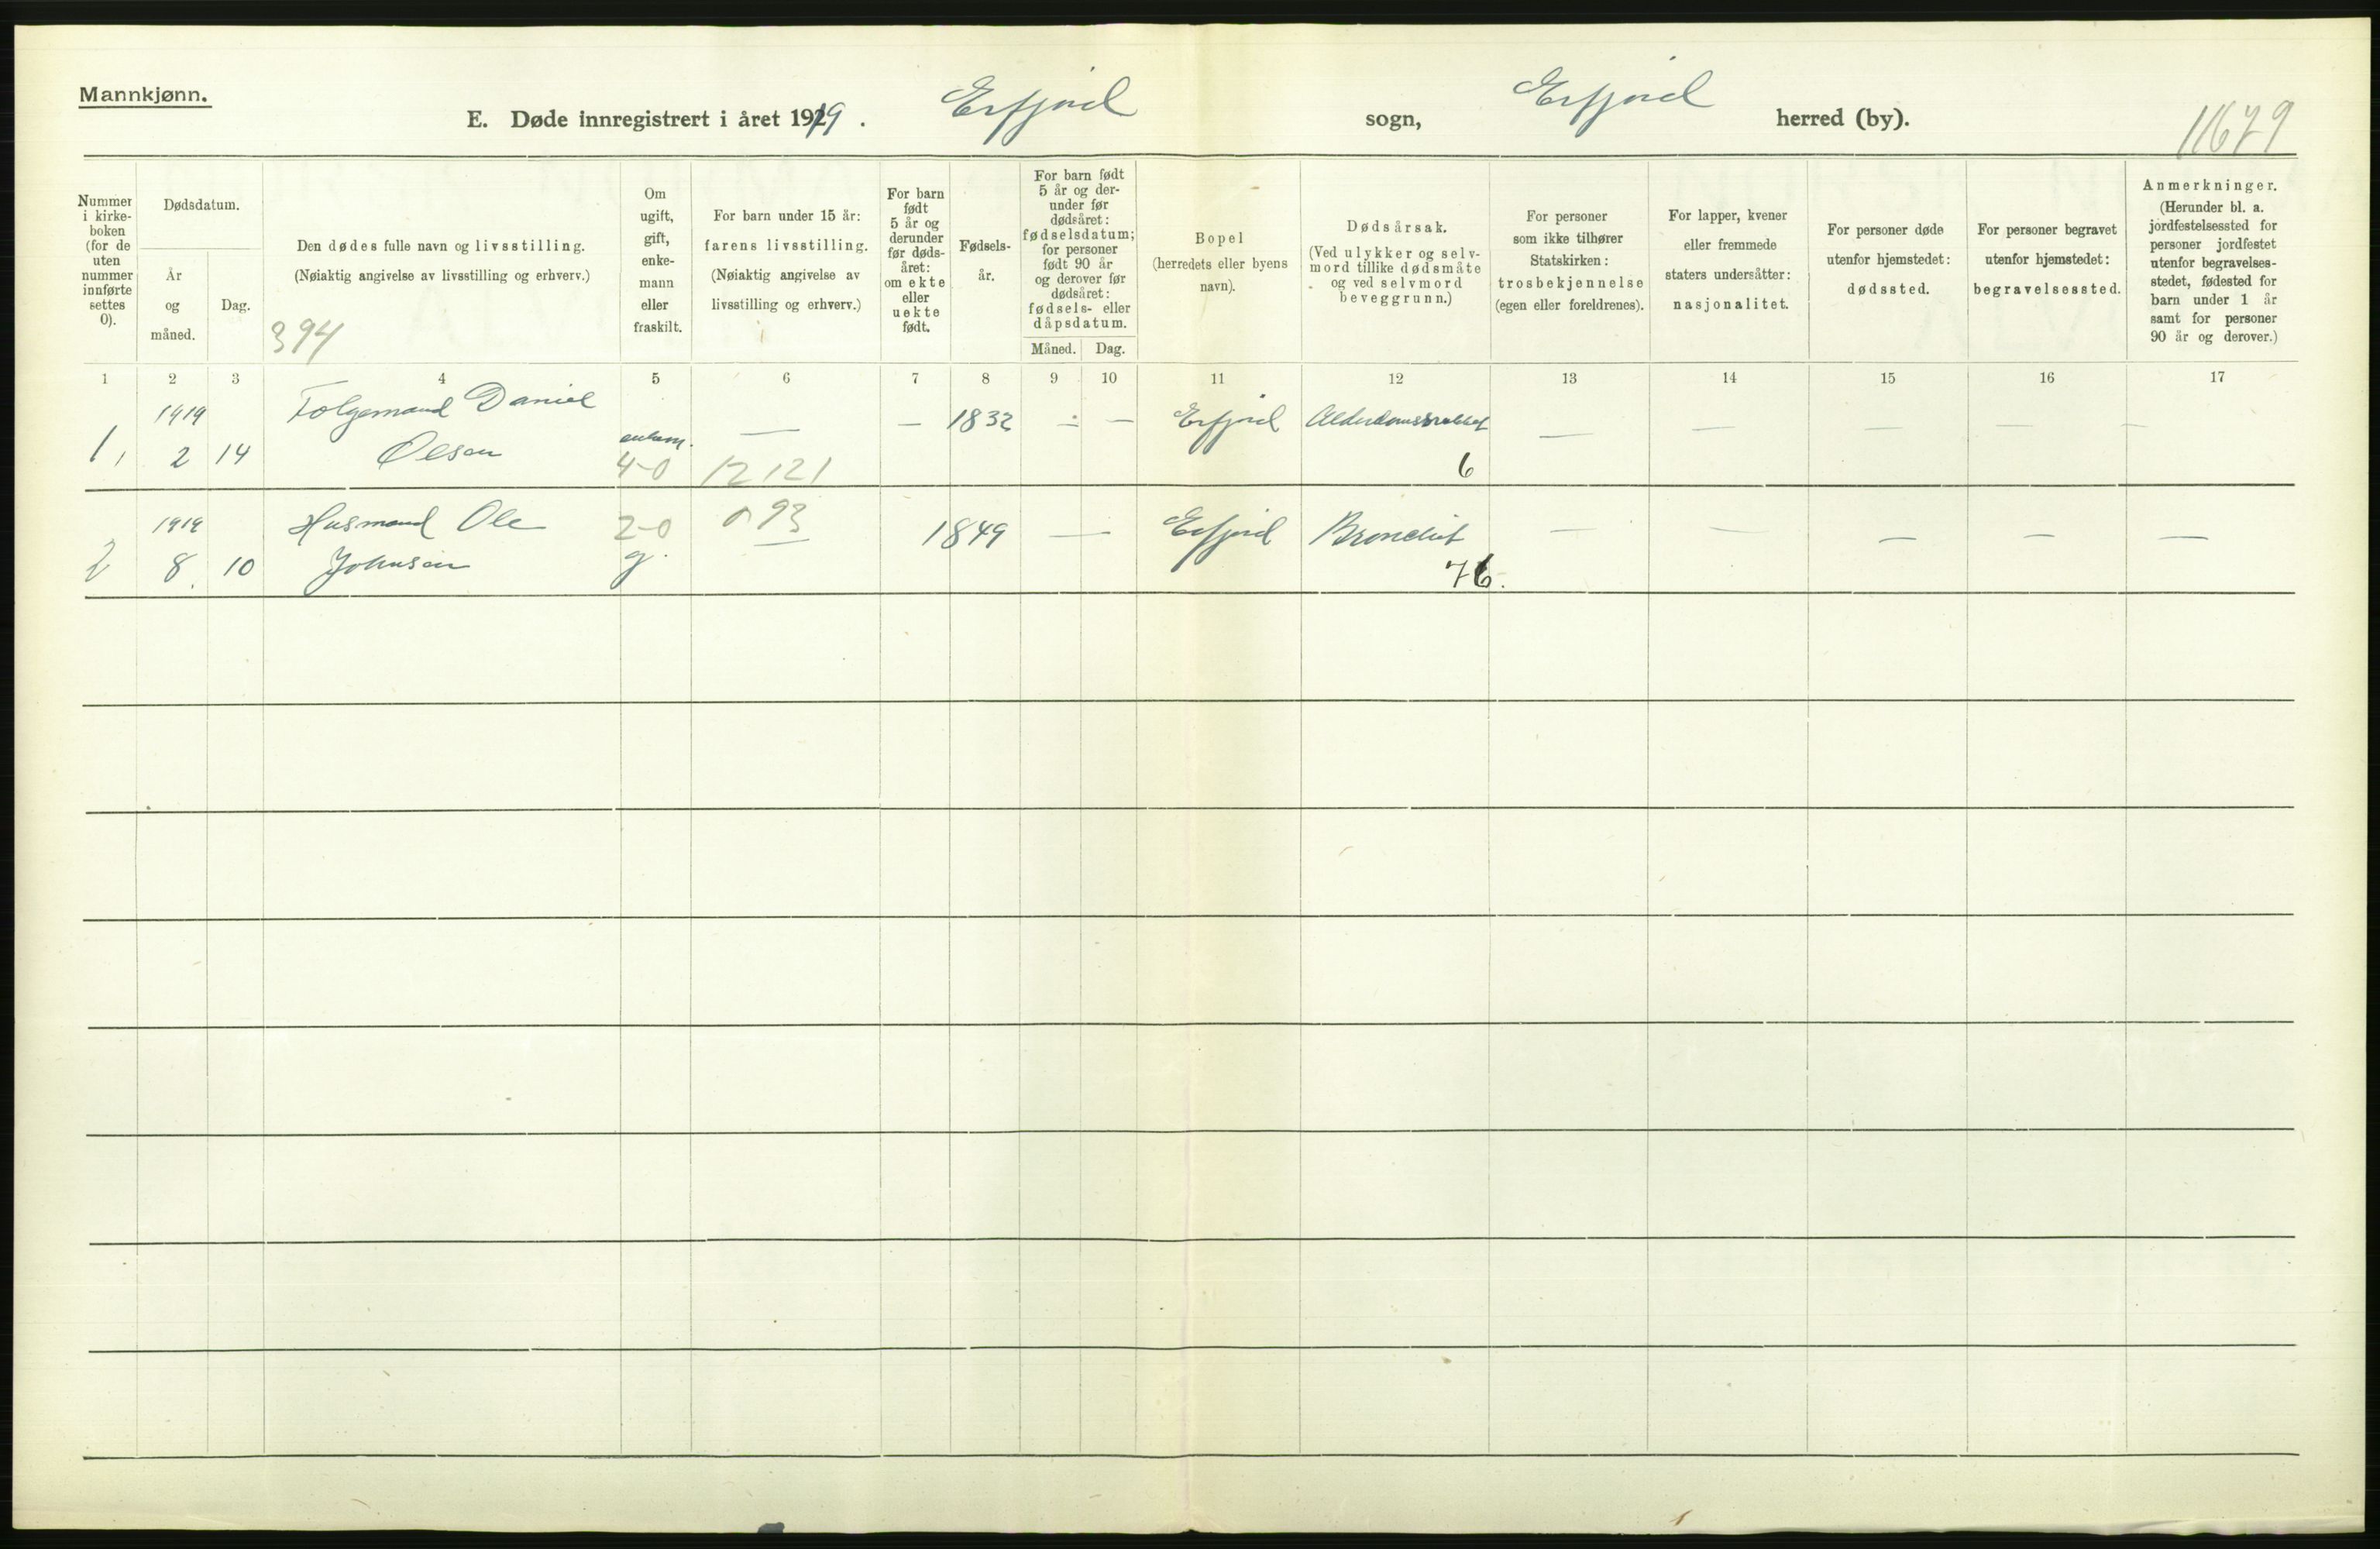 Mannkjønn.
E. Døde innregistrert i året 1919. Erfjord sogn, Erfjord herred (by). 11679
Nummer i kirke- boken (for de uten nummer innførte settes 0).
Dødsdatum.
År og måned.
Dag.
Den dødes fulle navn og livsstilling.
(Nøiaktig angivelse av livsstilling og erhverv.)
394
Om ugift, gift, enke- mann eller fraskilt.
For barn under 15 år:
farens livsstilling.
(Nøiaktig angivelse av
livsstilling og erhverv.)
For barn født 5 år og derunder før døds- året: om ekte eller uekte født.
Fødsels- år.
For barn født 5 år og der- under før dødsåret: fødselsdatum; for personer født 90 år og derover før dødsåret: fødsels- eller dåpsdatum.
Måned. Dag.
Bopel
(herredets eller byens
navn).
Dødsårsak.
(Ved ulykker og selv-
mord tillike dødsmåte
og ved selvmord
beveggrunn.)
For personer
som ikke tilhører
Statskirken:
trosbekjennelse
(egen eller foreldrenes).
For lapper, kvener
eller fremmede
staters undersåtter:
nasjonalitet.
For personer døde
utenfor hjemstedet:
dødssted.
For personer begravet
utenfor hjemstedet:
begravelsessted.
Anmerkninger.
(Herunder bl. a.
jordfestelsessted for
personer jordfestet
utenfor begravelses-
stedet, fødested for
barn under 1 år
samt for personer
90 år og derover.)
1 2 3 4 5 6 7 8 9 10 11 12 13 14 15 16 17
1919 Folgemand Daniel — — 1832 — — Erfjord — — — — —
1, 2 14 Olsen enkem. 4-0 12121 6
1919 Husmand Ole 2-0 093 1849 — Erfjord Bronchit — — — — —
2 8. 10 Johnsen g. 76.